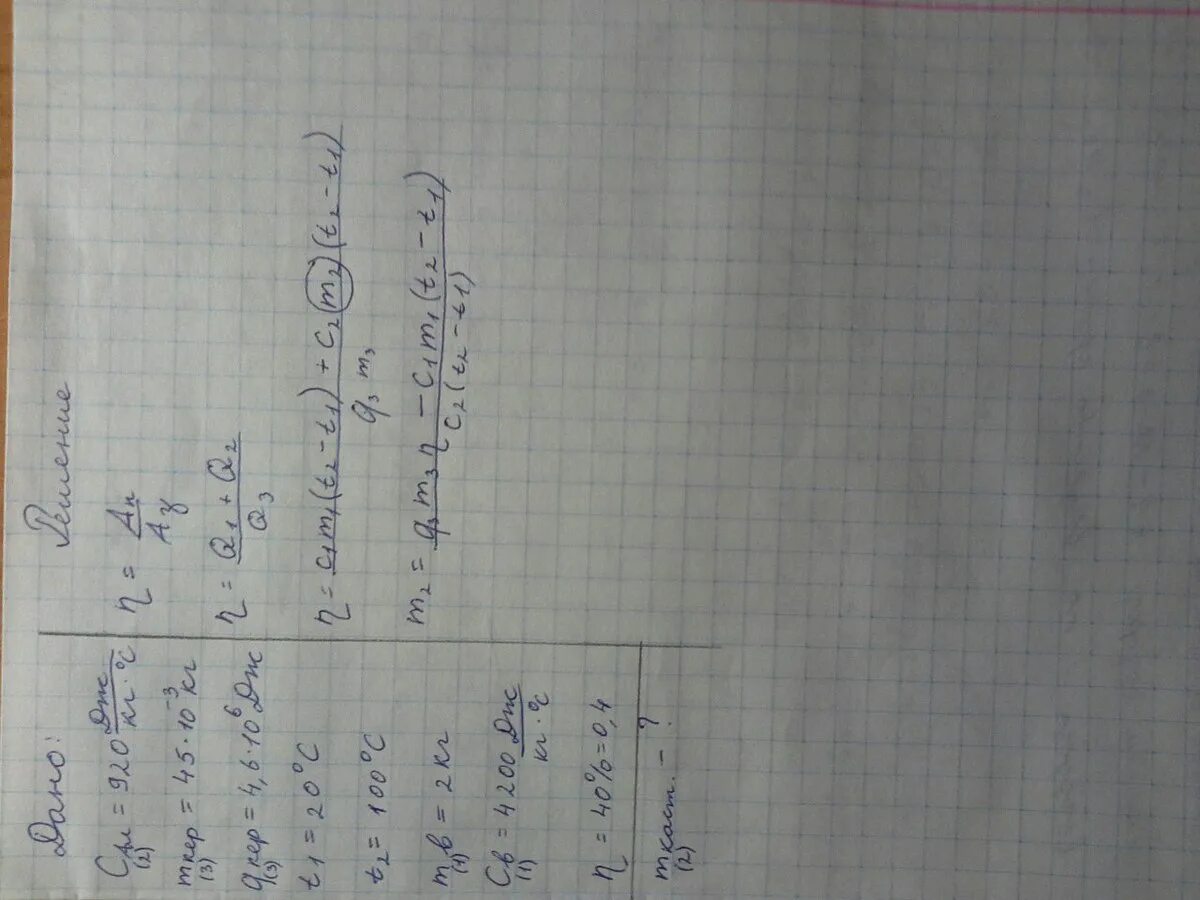 Дано:
Cал = 920 Дж/кг·°C
(2)
mкер = 45·10⁻³ кг
(3)
qкер = 4,6·10⁶ Дж
(3)
t₁ = 20°C
t₂ = 100°C
mв = 2 кг
(1)
Cв = 4200 Дж/кг·°C
(1)
η = 40% = 0,4
mкаст. - ?
(2)
Решение
η = Aп/Aз
η = (Q₁ + Q₂)/Q₃
η = (c₁m₁(t₂ - t₁) + c₂(m₂)(t₂ - t₁))/(q₃ m₃)
m₂ = (q₃m₃η - c₁m₁(t₂ - t₁))/(c₂(t₂ - t₁))